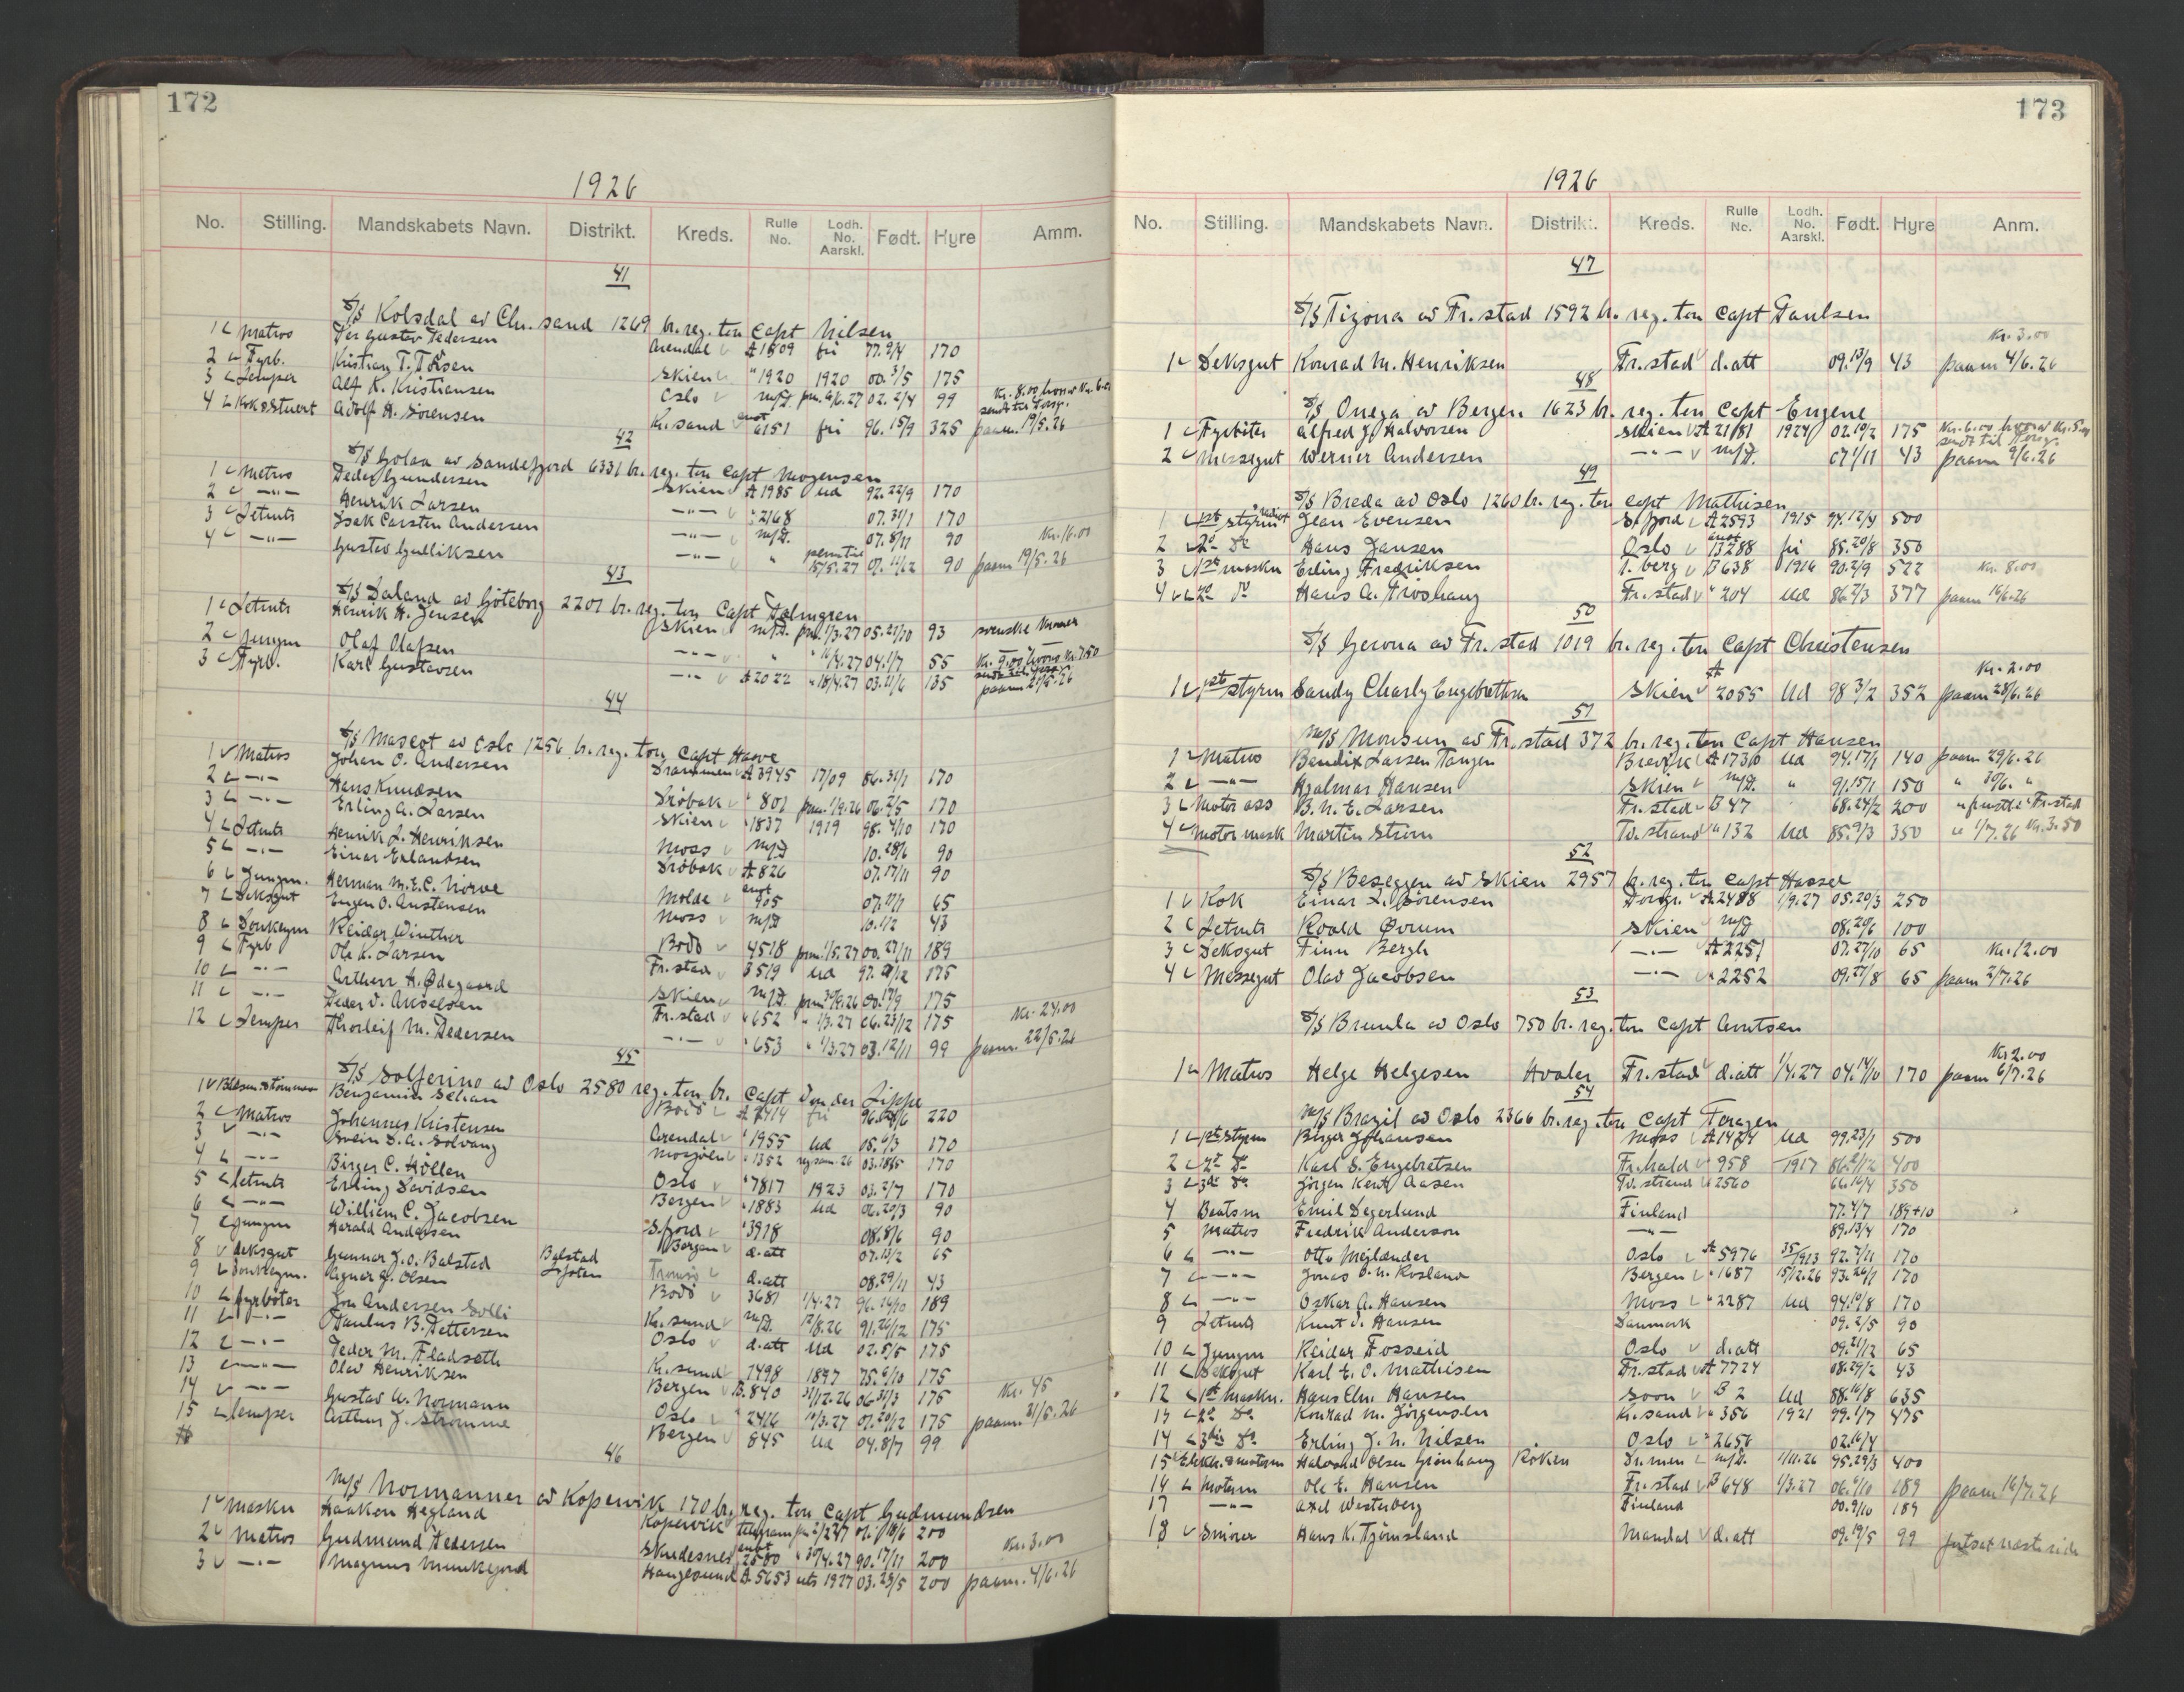 172
1926
No. Stilling. Mandskabets Navn. Distrikt. Kreds. Rulle No. Lodh. No. Aarskl. Født. Hyre Amm.
41
S/S Kolsdal av Chr.sand 1269 br. reg. ton Capt Nilsen
1 Matros Per Gustav Pedersen Arendal A 1509 fri 77.9/4 170
2 Fyrb. Kristian T. Tørsen Skien " 1920 1920 00.3/5 175
3 Lemper Alf K. Kristiansen Oslo m/D. prm. 6/6.27 02.2/4 99 Kr. 8.00 hvorav Kr. 6.00
4 Kok & Stuert Adolf H. Sørensen Kr.sand anot 6151 fri 96.15/9 325 sendt til Porsg. paam. 19/5.26
42
S/S Golaa av Sandefjord 6331 br. reg. ton Capt Mogensen
1 Matros Peder Gundersen Skien A 1985 Ud 92.22/9 170
2 —"— Henrik Larsen —"— " 2168 07.31/1 170
3 Letmts Isak Carsten Andersen —"— m/D. 07.8/11 90 Kr. 16.00
4 —"— Gustav Gulliksen —"— " perm til 15/5.27 07.11/12 90 paam 19/5.26
43
S/S Saland av Göteborg 2201 br. reg. ton Capt Holmgren
1 Letmts Henrik H. Jensen Skien m/D. prm. 1/3.27 05.21/10 93 svenske Kroner
2 Jungm Olaf Olafsen —"— " " 16/4.27 04.1/7 55 Kr. 9.00 hvorav Kr. 7.50
3 Fyrb. Karl Gustavsen —"— A 2022 " 18/4.27 03.21/6 135 sendt til Porsg. paam 21/5.26
44
S/S Mascot av Oslo 1256 br. reg. ton Capt Harve
1 Matros Johan O. Andersen Drammen A 3945 17/09 86.31/1 170
2 —"— Hans Knudsen Drøbak " 801 prm. 1/9.26 06.2/5 170
3 —"— Erling A. Larsen Skien " 1837 1919 98.4/10 170
4 Letmts Henrik L. Henriksen Moss m/D 10.28/6 90
5 —"— Einar Erlandsen Drøbak A 826 07.17/11 90
6 Jungm. Herman M. E. C. Norve Molde anot 905 07.27/1 65
7 Deksgut Eugen O. Austensen Moss m/D 10.1/2 43
8 Donkeym Reidar Winther Bodø 4518 prm. 1/5.27 00.27/11 189
9 Fyrb Ole K. Larsen Fr.stad B 519 Ud 97.21/12 175
10 —"— Arthur H. Ødegaard Skien m/D. prm 30/9.26 00.17/9 175
11 —"— Peder D. Akselsen Fr.stad " 652 " 1/3.27 06.23/12 175 Kr. 24.00
12 Lemper Thorleif M. Pedersen —"— " 653 " 1/3.27 03.12/11 99 paam. 22/5.26
45
S/S Solferino av Oslo 2580 reg. ton br. Capt von der Lippe
1 Baadsm & tømmerm Benjamin Schau Bodø A 7414 fri 96.28/6 220
2 Matros Johannes Kristensen Arendal " 1955 Ud 05.6/3 170
3 —"— Svein D. A. Solvang Mosjøen " 1352 reg sam. 26 03.18/5 170
4 —"— Birger C. Höllen Oslo " 7817 1923 03.2/7 170
5 Letmts Erling Davidsen Bergen " 1883 Ud 06.20/3 90
6 —"— William C. Jacobsen S.fjord " 3718 08.8/6 90
7 Jungm Harald Andersen Bergen d.att 07.13/2 65
8 deksgut Gunnar J. O. Balstad Balstad Lofoten Tromsø d.att 08.29/11 43
9 Donkeym. Agnar J. Olsen Bodø 3681 1/4.27 96.14/10 189
10 fyrbøter Jon Andersen Solli Kr.sund m/D. 12/8.26 91.26/12 175
11 —"— Paulus B. Pettersen Oslo d.att Ud 02.5/5 175
12 —"— Peder M. Fladseth Kr.sund 7498 1897 75.6/10 175
13 —"— Olav Henriksen Bergen B. 840 31/12.26 06.31/3 175 Kr. 45
14 —"— Gustav A. Normann Oslo " 2416 10/3.27 07.20/2 175 paam. 31/5.26
15 lemper Arthur J. Strømme Bergen 845 Ud 04.8/7 99
46
M/S Normanner av Kopervik 170 br. reg. ton Capt Gudmundsen
1 Maskn Haakon Hegland Kopervik telegram 01.18/6 200
2 Matros Gudmund Pedersen Skudesnes anot 2580 " 30/4.27 90.17/11 200 Kr. 3.00
3 —"— Magnus Munkejord Haugesund A. 5653 uts 1927 03.23/5 200 paam. 4/6.26
173
1926
No. Stilling. Mandskabets Navn. Distrikt. Kreds. Rulle No. Lodh. No. Aarskl. Født. Hyre Anm.
47
S/S Tizona av Fr.stad 1592 br. reg. ton Capt Paulsen
Kr. 3.00
1 Deksgut Konrad M. Henriksen Fr.stad d.att 09.13/9 43 paam 4/6.26
48
S/S Onega av Bergen 1623 br. reg. ton Capt Engene
1 Fyrbøter Alfred J. Halvorsen Skien A 2181 1924 02.19/2 175 Kr. 6.00 hvorav Kr. 5.00 sendt til Porsg.
2 Messegut Werner Andersen —"— m/D. 07.1/11 43 paam 9/6.26
49
S/S Breda av Oslo 1260 br. reg. ton Capt Mathisen
1 1st styrm & radiot Jean Evensen S.fjord A 2593 1915 94.12/4 500
2 2d do Hans Jansen Oslo anot 13288 fri 85.20/8 350
3 1st maskn Erling Fredriksen T.berg B 638 1916 90.2/9 522 Kr. 8.00
4 2d do Hans A. Troshaug Fr.stad " 204 Ud 86.2/3 377 paam 16/6.26
50
S/S Gerona av Fr.stad 1019 br. reg. ton Capt Christensen
Kr. 2.00
1 1st styrm Sandy Charly Engebrethsen Skien A 2055 Ud 98.3/2 352 paam 28/6.26
51
M/S Monsun av Fr.stad 372 br. reg. ton Capt Hansen
1 Matros Bendix Larsen Tangen Brevik A 1736 Ud 94.17/1 140 paam 29/6.26
2 —"— Hjalmar Hansen Skien m/D. " 91.15/1 150 " 30/6. "
3 Motor ass B. N. E. Larsen Fr.stad B 47 68.24/2 200 Fr.stad
4 motor mask Martin Strøm Tv.strand " 132 Ud 85.9/3 350 " 1/7.26 Kr. 3.50
52
S/S Beseggen av Skien 2957 br. reg. ton Capt Hassel
1 Kok Einar L. Sørensen Porsgr. A. 2488 1/9.27 05.20/3 250
2 Letmts Roald Ørum Skien m/D 08.20/6 100
3 Deksgut Finn Bergh —"— A 2251 07.27/10 65 Kr. 12.00
4 Messegut Olav Jacobsen —"— " 2252 09.27/8 65 paam 2/7.26
53
S/S Brumla av Oslo 750 br. reg. ton Capt Arntsen
Kr 2.00
1 Matros Helge Helgesen Hvaler Fr.stad d.att 1/4.27 04.14/10 170 paam 6/7.26
54
M/S Brazil av Oslo 2366 br. reg. ton Capt Foragen
1 1st styrm Birger Johansen Moss A 1424 Ud 99.23/1 500
2 2d do Karl S. Engebretsen Fr.hald " 958 1917 86.2/12 400
3 3die do Jørgen Kentz Aasen Tv.strand " 2560 66.16/4 350
4 Baatsm Emil Degerlund Finland 77.4/7 189+10
5 Matros Fredrik Anderson —"— 89.13/4 170
6 —"— Otto Mejlander Oslo A 5976 35/1913 92.7/11 170
7 —"— Jonas O. N. Rosland Bergen " 1687 15/12.26 93.26/1 170
8 —"— Oskar A. Hansen Moss " 2287 Ud 94.10/8 170
9 Letmts Knut V. Hansen Danmark 09.2/5 90
10 Jungm Reidar Fosseid Oslo d.att 09.21/12 65
11 Deksgut Karl E. O. Mathisen Fr.stad A 7724 08.29/2 43
12 1st Maskn. Hans Chr. Hansen Soon B 2 Ud 88.16/8 635
13 2d do Konrad M. Jörgensen Kr.sand " 356 1921 99.1/7 475
14 3die do Erling J. N. Nilsen Oslo " 2656 02.16/4
15 Elektr. & motorm Halvard Olsen Grønhaug Røken Dr.men m/D. 1/11.26 95.29/3 400
16 Motorm Ole E. Hansen Fr.stad B 648 1/3.27 06.6/10 189 paam 16/7.26
17 —"— Axel Westerberg Finland 00.9/10 189
18 Smører Hans K. Tjömsland Mandal d.att 09.19/5 99 fortsat næste side